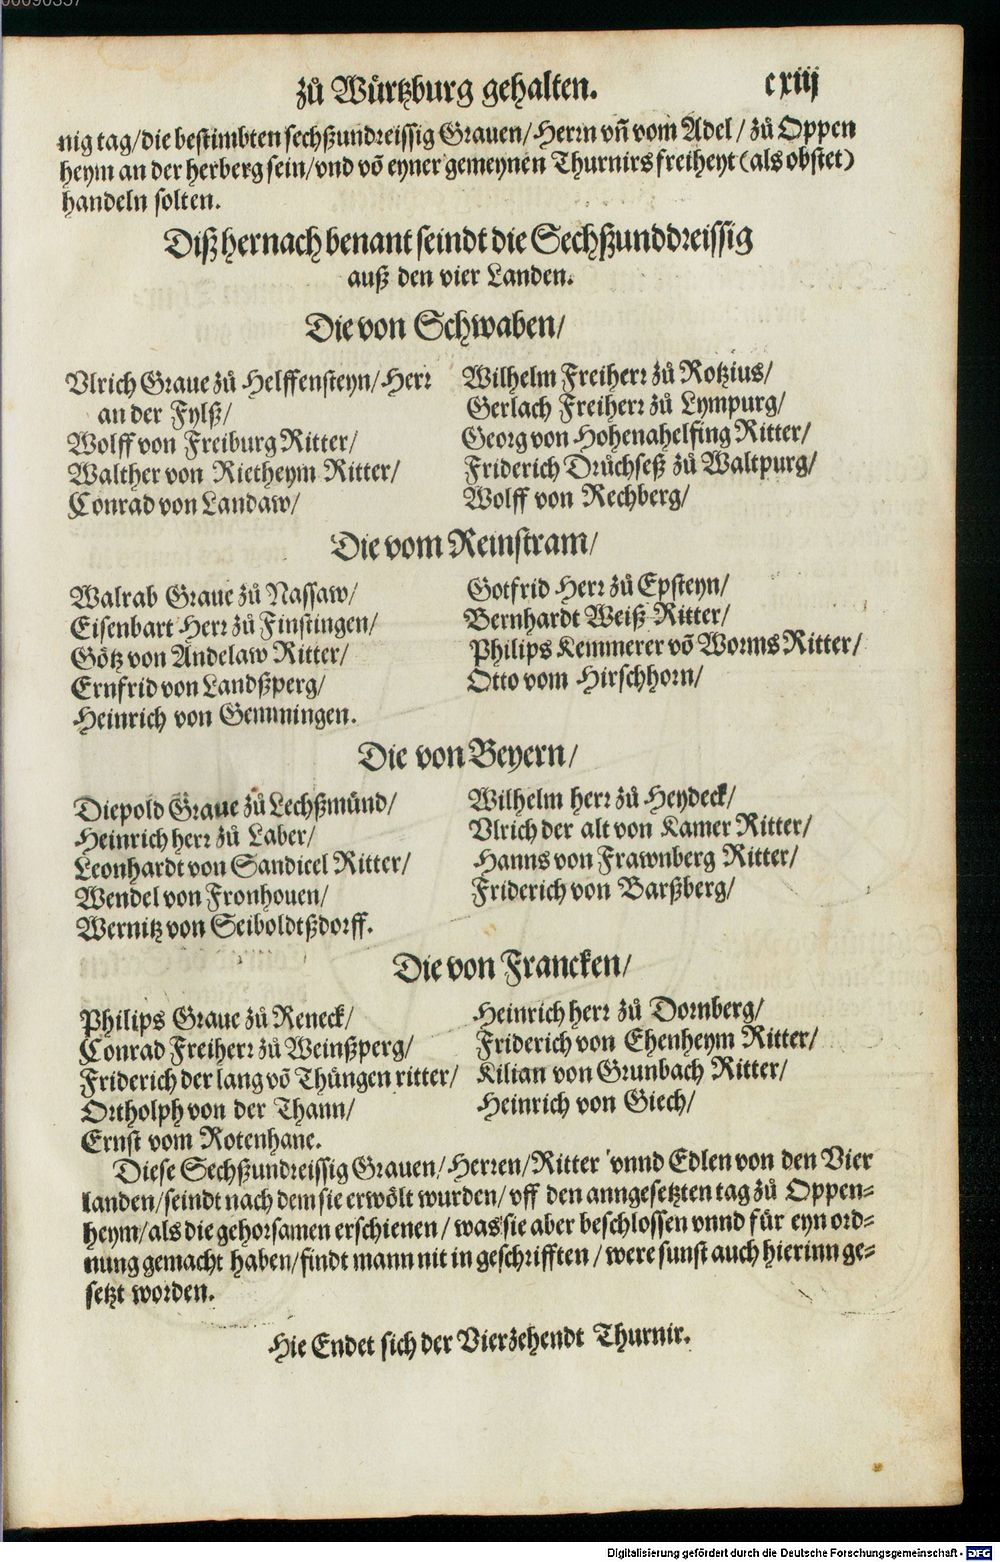 zů Würtzburg gehalten.
cxiij
nig tag/die bestimbten sechßundreissig Grauen/Herrn vñ vom Adel/zů Oppen
heym an der herberg sein/vnd võ eyner gemeynen Thurnirs freiheyt (als obstet)
handeln solten.
Diß hernach benant seindt die Sechßunddreissig
auß den vier Landen.
Die von Schwaben/
Vlrich Graue zů Helffensteyn/Herr
an der Fylß/
Wolff von Freiburg Ritter/
Walther von Rietheym Ritter/
Conrad von Landaw/
Wilhelm Freiherr zů Rotzius/
Gerlach Freiherr zů Lympurg/
Georg von Hohenahelfing Ritter/
Friderich Drůchseß zů Waltpurg/
Wolff von Rechberg/
Die vom Reinstram/
Walrab Graue zů Nassaw/
Eisenbart Herr zů Finstingen/
Götz von Andelaw Ritter/
Ernfrid von Landßperg/
Heinrich von Gemmingen.
Gotfrid Herr zů Epsteyn/
Bernhardt Weiß Ritter/
Philips Kemmerer võ Worms Ritter/
Otto vom Hirschhorn/
Die von Beyern/
Diepold Graue zů Lechßmünd/
Heinrich herr zů Laber/
Leonhardt von Sandicel Ritter/
Wendel von Fronhouen/
Wernitz von Seiboldtßdorff.
Wilhelm herr zů Heydeck/
Vlrich der alt von Kamer Ritter/
Hanns von Frawnberg Ritter/
Friderich von Barßberg/
Die von Francken/
Philips Graue zů Reneck/
Conrad Freiherr zů Weinßperg/
Friderich der lang võ Thüngen ritter/
Ortholph von der Thann/
Ernst vom Rotenhane.
Heinrich herr zů Dornberg/
Friderich von Ehenheym Ritter/
Kilian von Grunbach Ritter/
Heinrich von Giech/
Diese Sechßundreissig Grauen/Herren/Ritter vnnd Edlen von den Vier
landen/seindt nach dem sie erwölt wurden/vff den anngesetzten tag zů Oppen-
heym/als die gehorsamen erschienen/was sie aber beschlossen vnnd für eyn ord-
nung gemacht haben/findt mann nit in geschrifften/were sunst auch hierinn ge-
setzt worden.
Hie Endet sich der Vierzehendt Thurnir.
Digitalisierung gefördert durch die Deutsche Forschungsgemeinschaft - DFG